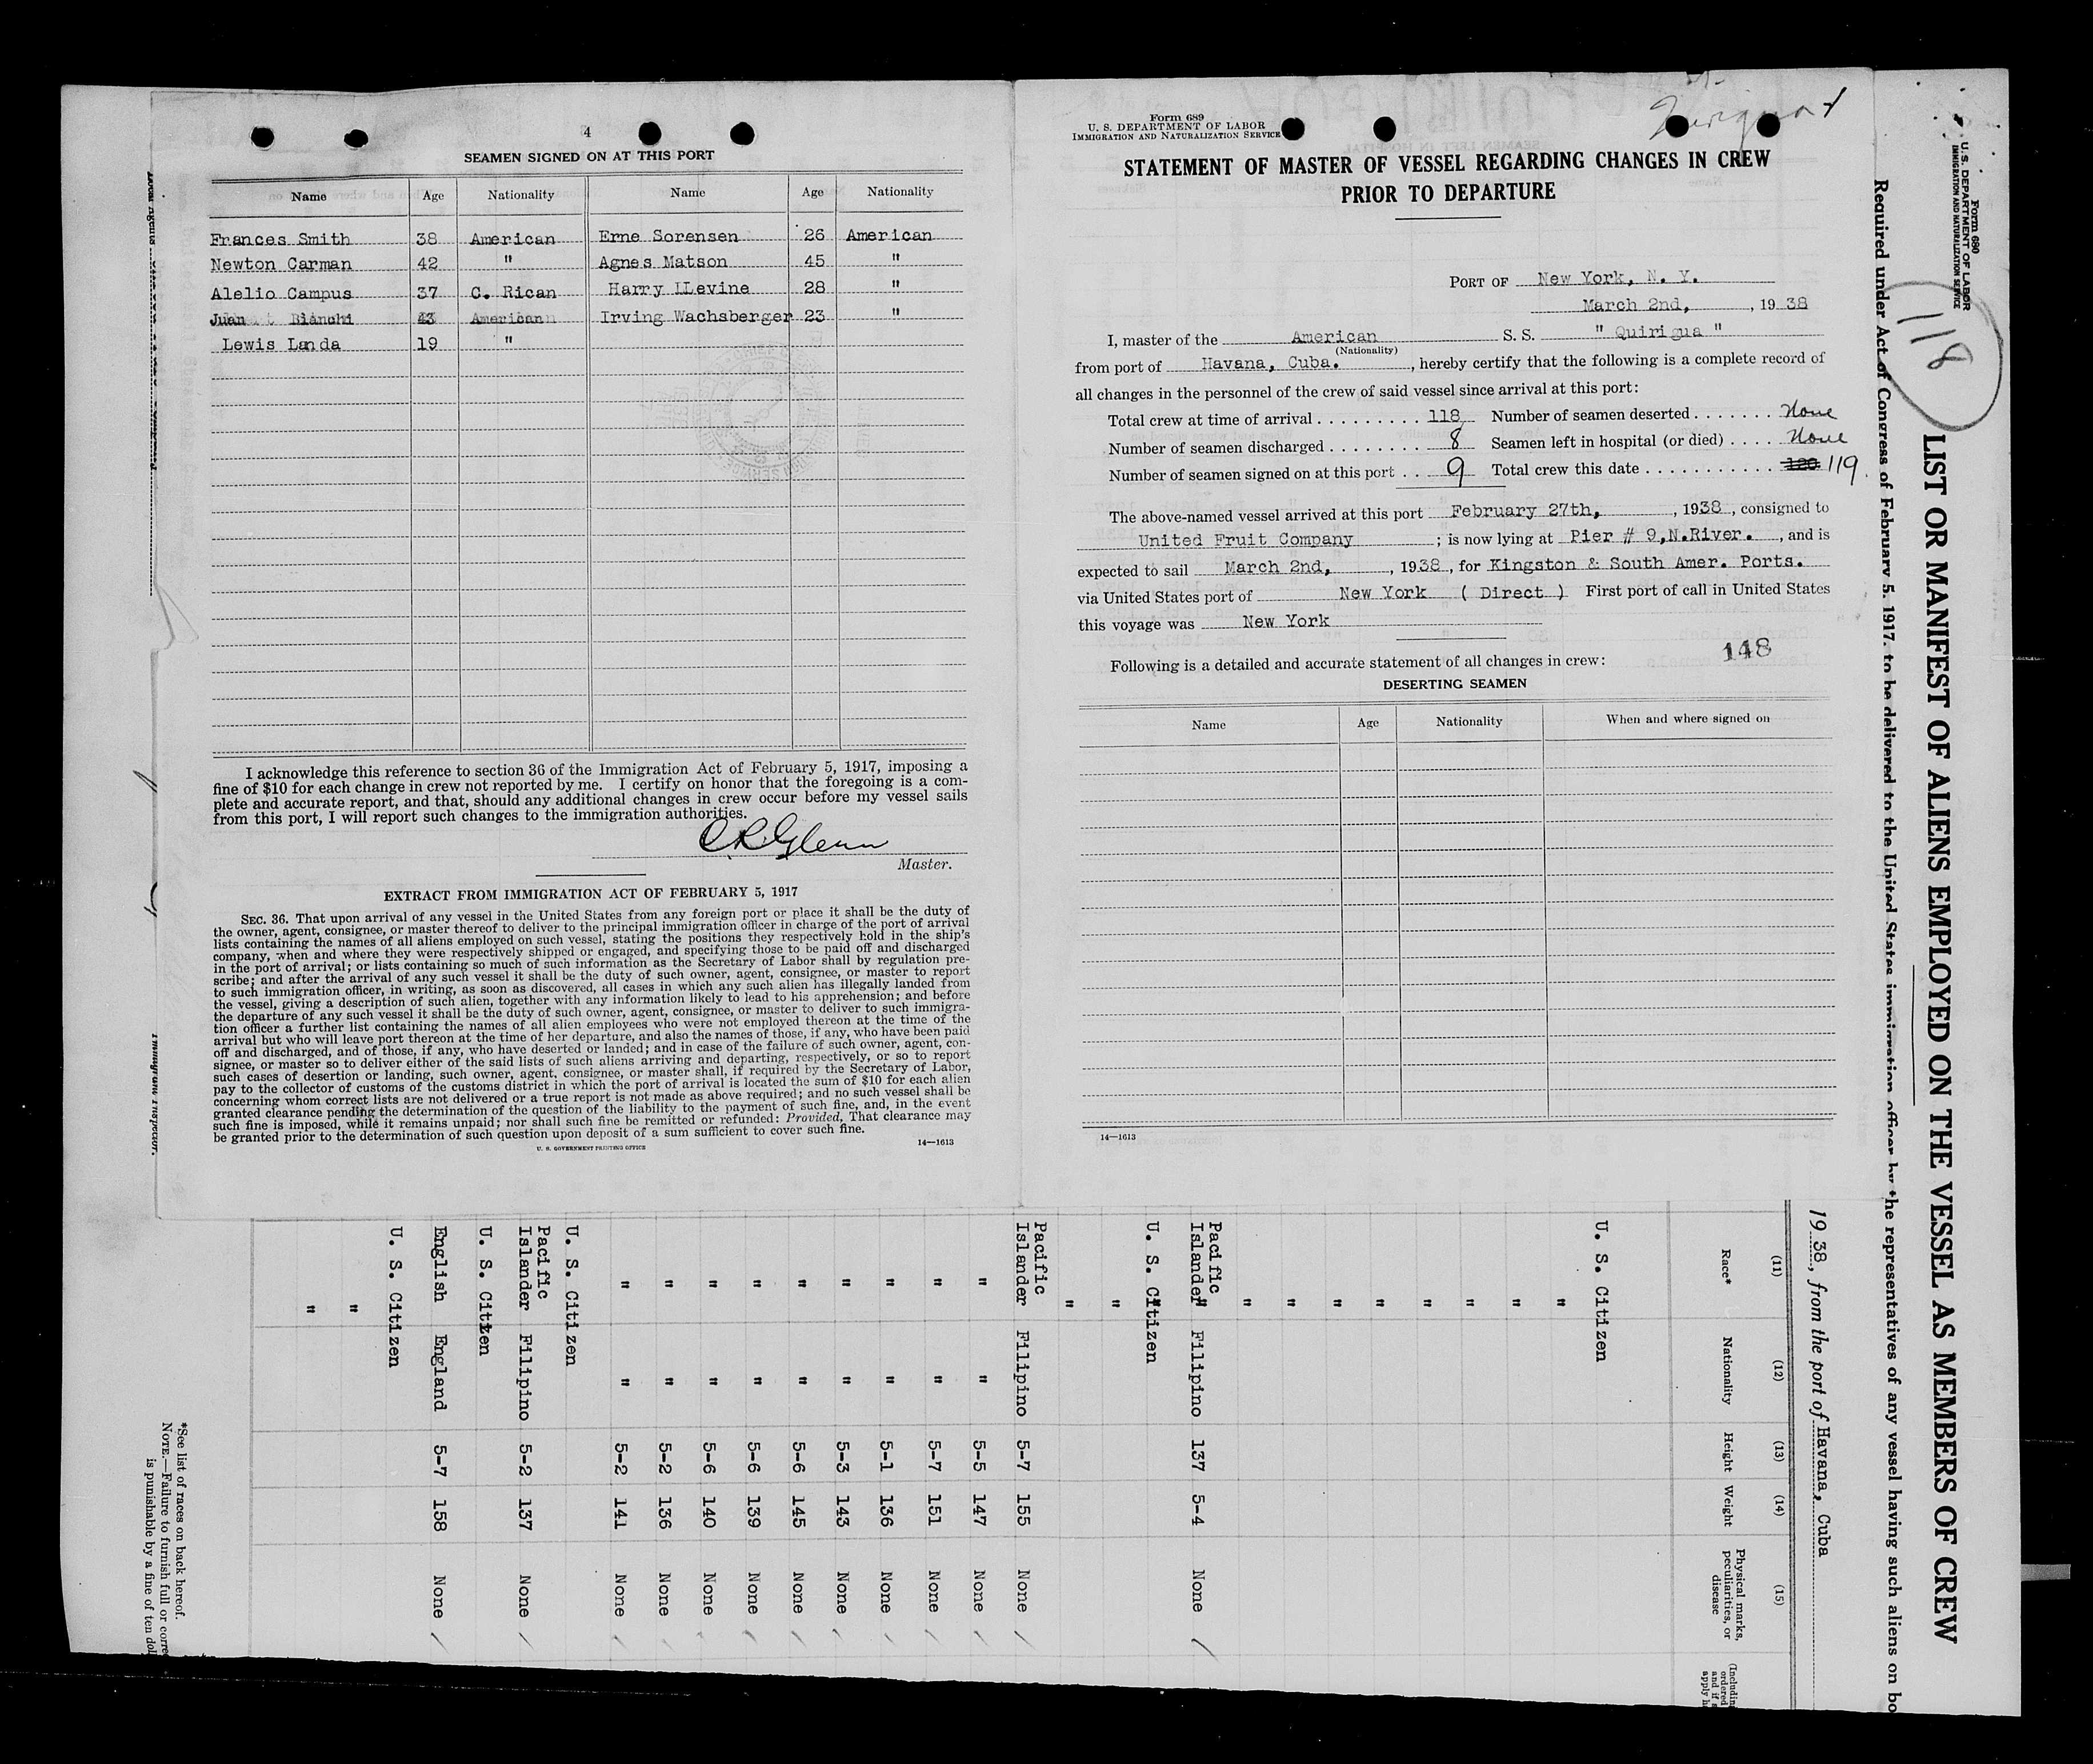 4
SEAMEN SIGNED ON AT THIS PORT
Name Age Nationality Name Age Nationality
Frances Smith 38 American Erne Sorensen 26 American
Newton Carman 42 " Agnes Matson 45 "
Alelio Campus 37 C. Rican Harry LLevine 28 "
Juan Bianchi 43 American Irving Wachsberger 23 "
Lewis Landa 19 "
I acknowledge this reference to section 36 of the Immigration Act of February 5, 1917, imposing a
fine of $10 for each change in crew not reported by me. I certify on honor that the foregoing is a com-
plete and accurate report, and that, should any additional changes in crew occur before my vessel sails
from this port, I will report such changes to the immigration authorities.
C.R. Glenn
Master.
EXTRACT FROM IMMIGRATION ACT OF FEBRUARY 5, 1917
SEC. 36. That upon arrival of any vessel in the United States from any foreign port or place it shall be the duty of
the owner, agent, consignee, or master thereof to deliver to the principal immigration officer in charge of the port of arrival
lists containing the names of all aliens employed on such vessel, stating the positions they respectively hold in the ship's
company, when and where they were respectively shipped or engaged, and specifying those to be paid off and discharged
in the port of arrival; or lists containing so much of such information as the Secretary of Labor shall by regulation pre-
scribe; and after the arrival of any such vessel it shall be the duty of such owner, agent, consignee, or master to report
to such immigration officer, in writing, as soon as discovered, all cases in which any such alien has illegally landed from
the vessel, giving a description of such alien, together with any information likely to lead to his apprehension; and before
the departure of any such vessel it shall be the duty of such owner, agent, consignee, or master to deliver to such immigra-
tion officer a further list containing the names of all alien employees who were not employed thereon at the time of the
arrival but who will leave port thereon at the time of her departure, and also the names of those, if any, who have been paid
off and discharged, and of those, if any, who have deserted or landed; and in case of the failure of such owner, agent, con-
signee, or master so to deliver either of the said lists of such aliens arriving and departing, respectively, or so to report
such cases of desertion or landing, such owner, agent, consignee, or master shall, if required by the Secretary of Labor,
pay to the collector of customs of the customs district in which the port of arrival is located the sum of $10 for each alien
concerning whom correct lists are not delivered or a true report is not made as above required; and no such vessel shall be
granted clearance pending the determination of the question of the liability to the payment of such fine, and, in the event
such fine is imposed, while it remains unpaid; nor shall such fine be remitted or refunded: Provided, That clearance may
be granted prior to the determination of such question upon deposit of a sum sufficient to cover such fine.
U. S. GOVERNMENT PRINTING OFFICE 14—1613
Form 689
U. S. DEPARTMENT OF LABOR
IMMIGRATION AND NATURALIZATION SERVICE
STATEMENT OF MASTER OF VESSEL REGARDING CHANGES IN CREW
PRIOR TO DEPARTURE
PORT OF New York, N. Y.
March 2nd, , 1938
I, master of the American S. S. " Quirigua "
(Nationality)
from port of Havana, Cuba. , hereby certify that the following is a complete record of
all changes in the personnel of the crew of said vessel since arrival at this port:
Total crew at time of arrival . . . . . . . . . 118 Number of seamen deserted . . . . . . . None
Number of seamen discharged . . . . . . . . 8 Seamen left in hospital (or died) . . . . None
Number of seamen signed on at this port . . 9 Total crew this date . . . . . . . . . . . 120 119
The above-named vessel arrived at this port February 27th, , 1938, consigned to
United Fruit Company ; is now lying at Pier # 9,N.River. , and is
expected to sail March 2nd, , 1938, for Kingston & South Amer. Ports.
via United States port of New York ( Direct ) First port of call in United States
this voyage was New York
Following is a detailed and accurate statement of all changes in crew: 148
DESERTING SEAMEN
Name Age Nationality When and where signed on
14—1613
Form 680
U. S. DEPARTMENT OF LABOR
IMMIGRATION AND NATURALIZATION SERVICE
118
LIST OR MANIFEST OF ALIENS EMPLOYED ON THE VESSEL AS MEMBERS OF CREW
Required under Act of Congress of February 5, 1917, to be delivered to the United States immigration officer by the representatives of any vessel having such aliens on bo
1938, from the port of Havana, Cuba
(11) (12) (13) (14) (15)
Race* Nationality Height Weight Physical marks, peculiarities, or disease
U. S. Citizen
"
"
"
"
"
"
"
"
Pacific
Islander Filipino 137 5-4 None
U. S. Citizen
"
"
Pacific
Islander Filipino 5-7 155 None
" " 5-5 147 None
" " 5-7 151 None
" " 5-1 136 None
" " 5-3 143 None
" " 5-6 145 None
" " 5-6 139 None
" " 5-6 140 None
" " 5-2 136 None
" " 5-2 141 None
U. S. Citizen
Pacific
Islander Filipino 5-2 137 None
U. S. Citizen
English England 5-7 158 None
U. S. Citizen
"
"
*See list of races on back hereof.
NOTE.—Failure to furnish full or corre
is punishable by a fine of ten dol
Immigrant Inspector.